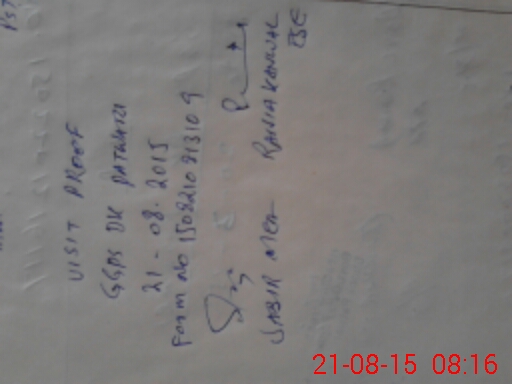 VISIT PROOF
GGPS DK PATWARI
21-08-2015
Form No 150821081310 9
SABIR MEA
RAZIA KANWAL
ESE
21-08-15 08:16